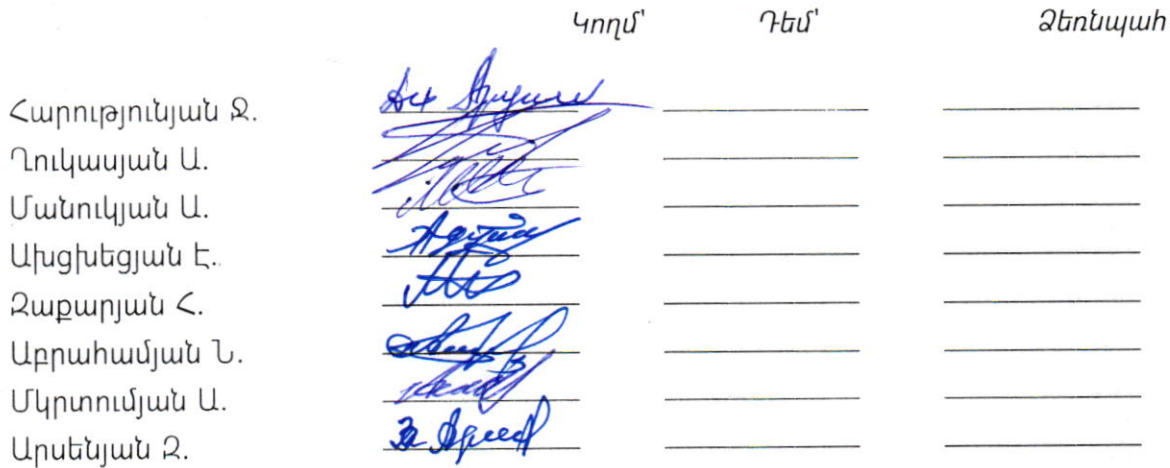 Կողմ' Դեմ' Ձեռնպահ
Հարությունյան Ջ.
Ղուկասյան Ա.
Մանուկյան Ա.
Ախցխեցյան Է.
Զաքարյան Հ.
Աբրահամյան Ն.
Մկրտումյան Ա.
Արսենյան Զ.